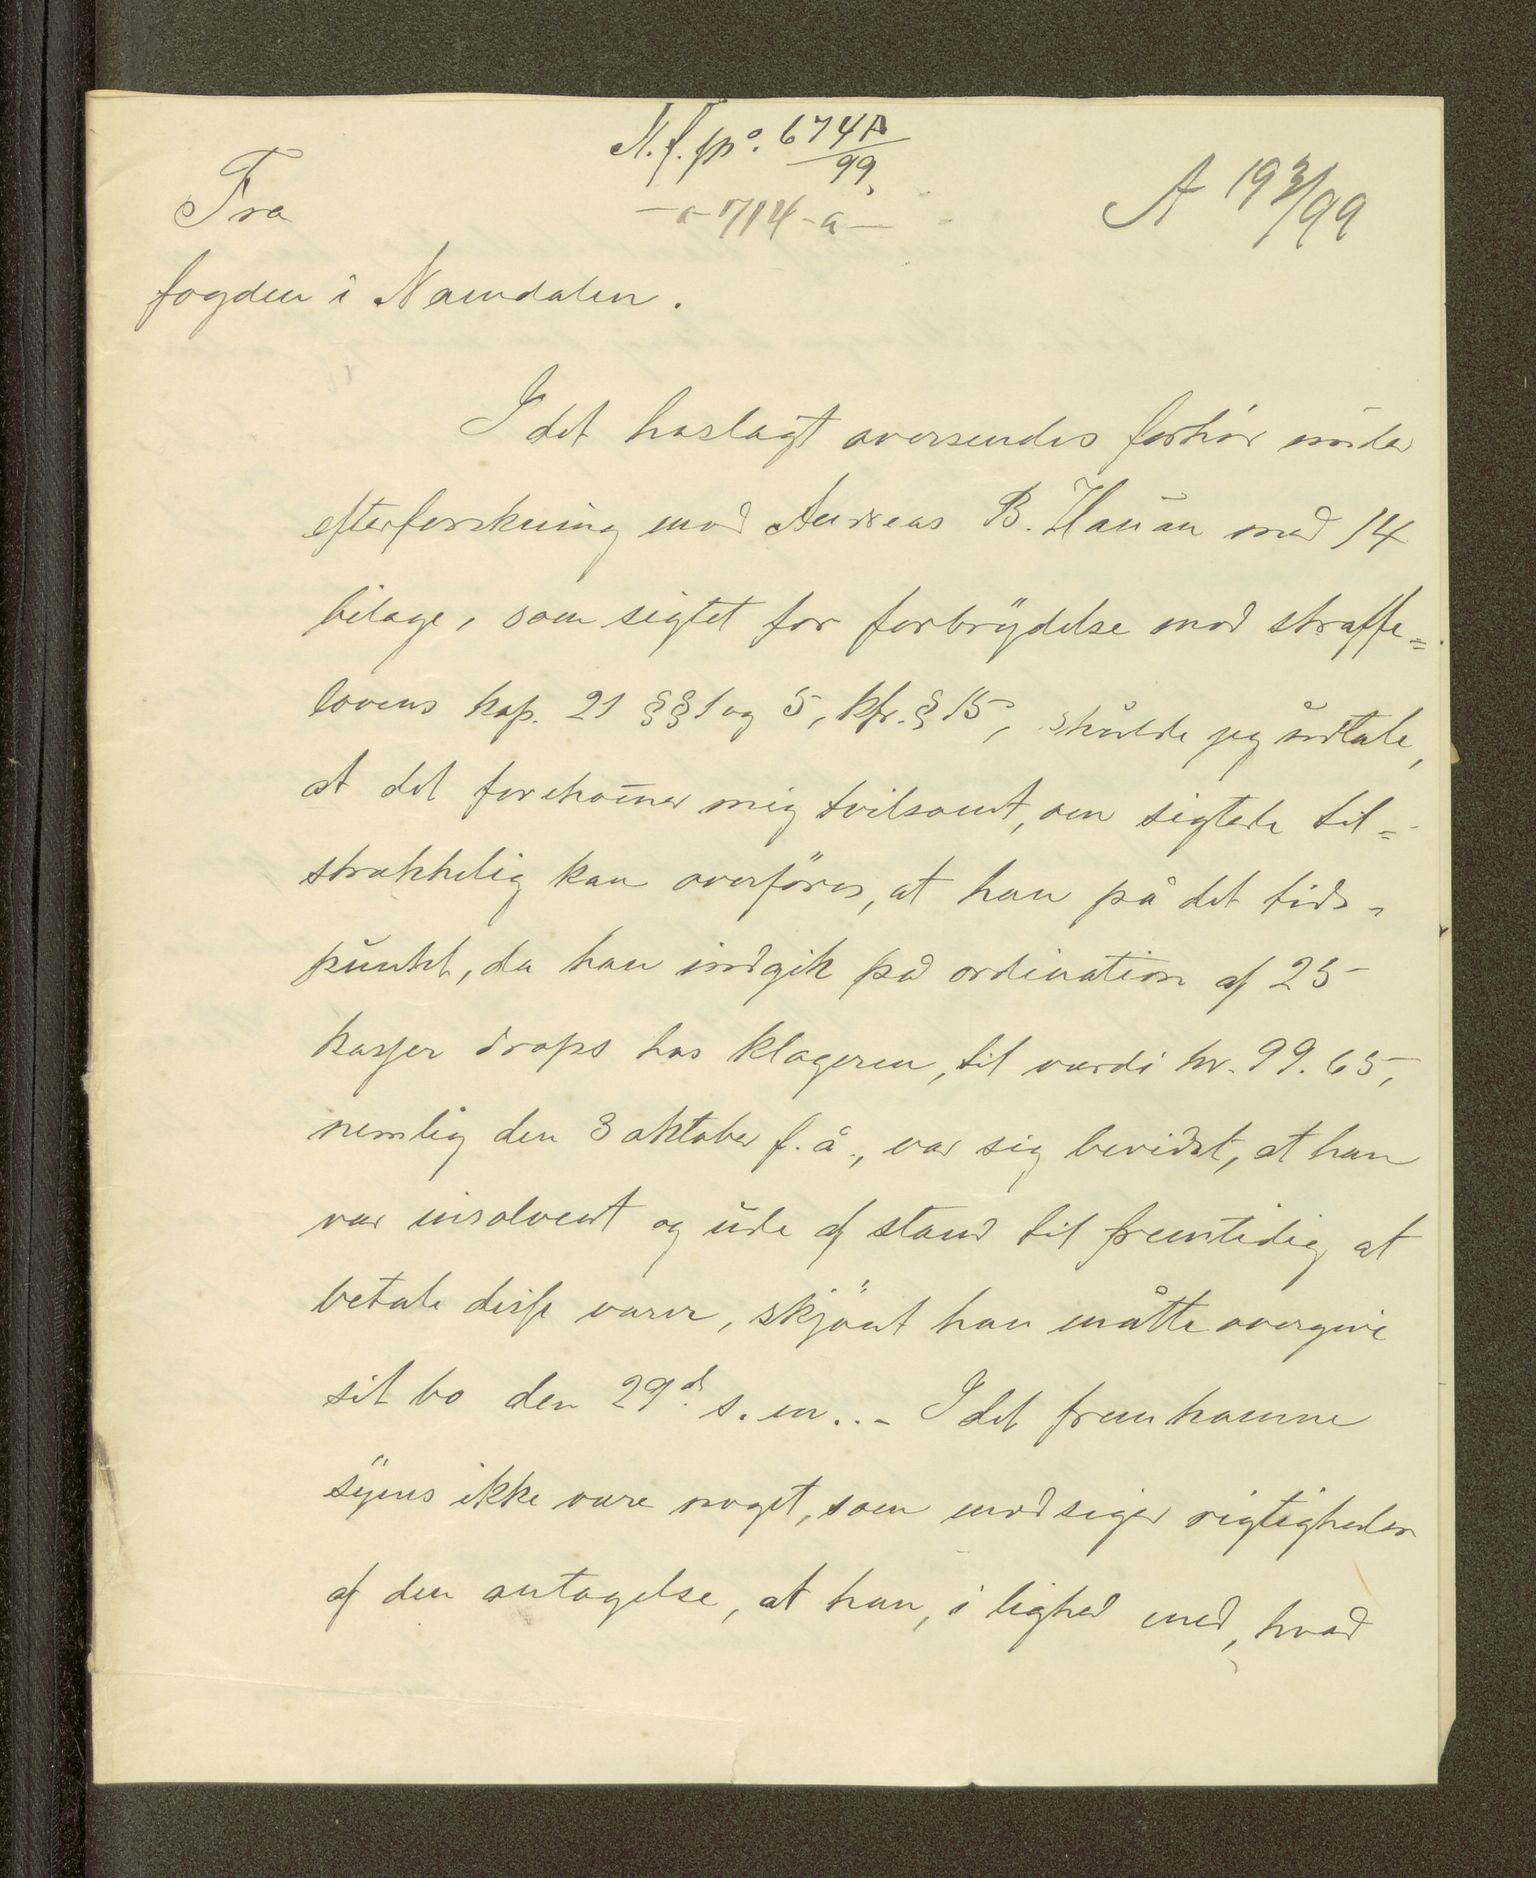 N. f. p°. 674A/99,
Fra
-"- 714 - a -
A 19 3/99
fogden i Namdalen.
I det hoslagt oversendes forhör under
efterforskning mod Andreas B. Hauan med 14
bilage, som sigtet for forbrydelse mod straffe=
lovens kap. 21 §§ 1 og 5, kfr. § 15, skulde jeg udtale,
at det forekom̅er mig tvilsomt, om sigtede til=
strækkelig kan overföres, at han på det tids-
punkt, da han indgik på ordination af 25
kasser drops hos klageren, til værdi kr. 99.65,
nemlig den 3 oktober f. å., var sig bevidst, at han
var insolvent og ude af stand til fremtidig at
betale disse varer, skjönt han måtte overgive
sit bo den 29d s. m.. - I det fremkomne
synes ikke være noget, som modsiger rigtigheden
af den antagelse, at han, i lighed med, hvad